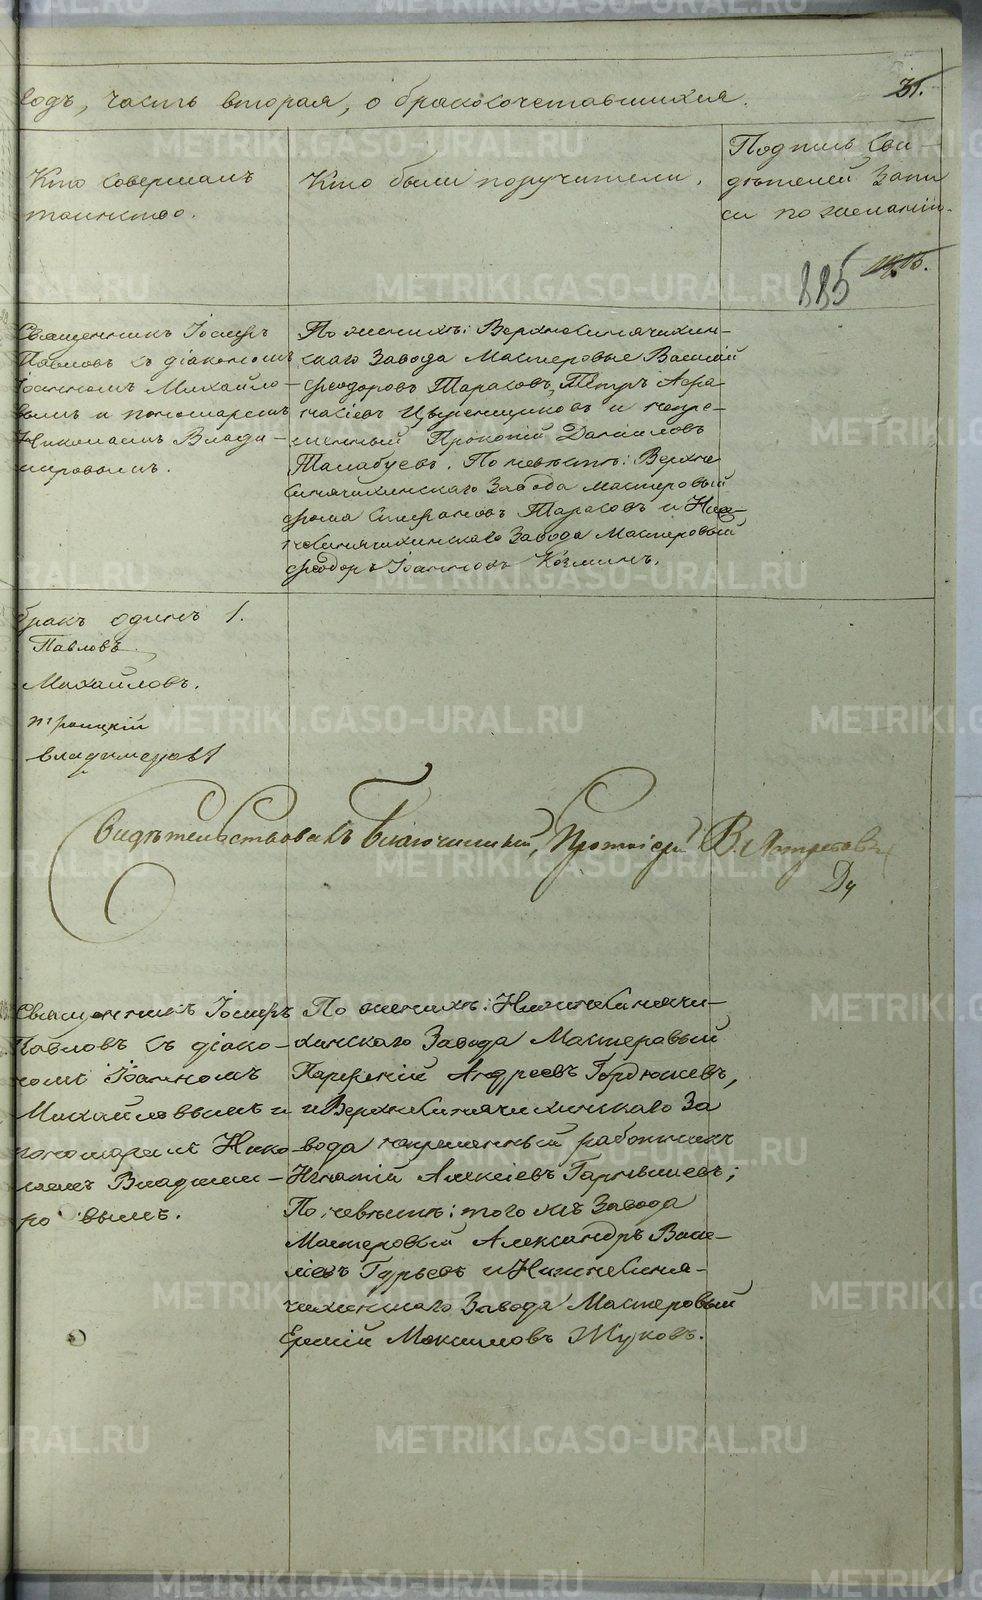 годъ, часть вторая, о бракосочетавшихся.
31.
Кто совершалъ
таинство.
Кто были поручители.
Подпись Сви-
дѣтелей Запи
си по желанію.
885
Священникъ Іосифъ
Павловъ съ діакономъ
Іоанномъ Михайло-
вымъ и пономаремъ
Николаемъ Влади-
мировымъ.
По женихѣ: Верхнесинячихин-
скаго Завода Мастеровые Василій
Ѳеодоровъ Тарасовъ, Петръ Аѳа-
насіевъ Цыренщиковъ и непре-
менный Прокопій Даніиловъ
Талабуевъ. По невѣстѣ: Верхне
синячихинскаго Завода мастеровый
Ѳома Стефановъ Тарасовъ и Ниж-
несинячихинскаго Завода Мастеровый
Ѳеодоръ Іоанновъ Козминъ.
бракъ одинъ 1.
Павловъ
Михайловъ.
троицкій
владимеровъ
Свидѣтельствовалъ Благочинный, Протоіерей В.
Священникъ Іосифъ
Павловъ съ діако-
номъ Іоанномъ
Михайловымъ и
пономаремъ Нико-
лаемъ Владими-
ровымъ.
По женихѣ: Нижнесинячи-
хинскаго Завода Мастеровый
Парфеній Андреевъ Гордюшевъ,
и Верхнесинячихинскаго За
вода непременный работникъ
Игнатій Алексіевъ Гартышевъ;
По невѣстѣ: того жъ Завода
Мастеровый Александръ Васи-
ліевъ Гурьевъ и Нижнесиня-
чихинскаго Завода Мастеровый
Ермій Максимовъ Жуковъ.
METRIKI.GASO-URAL.RU